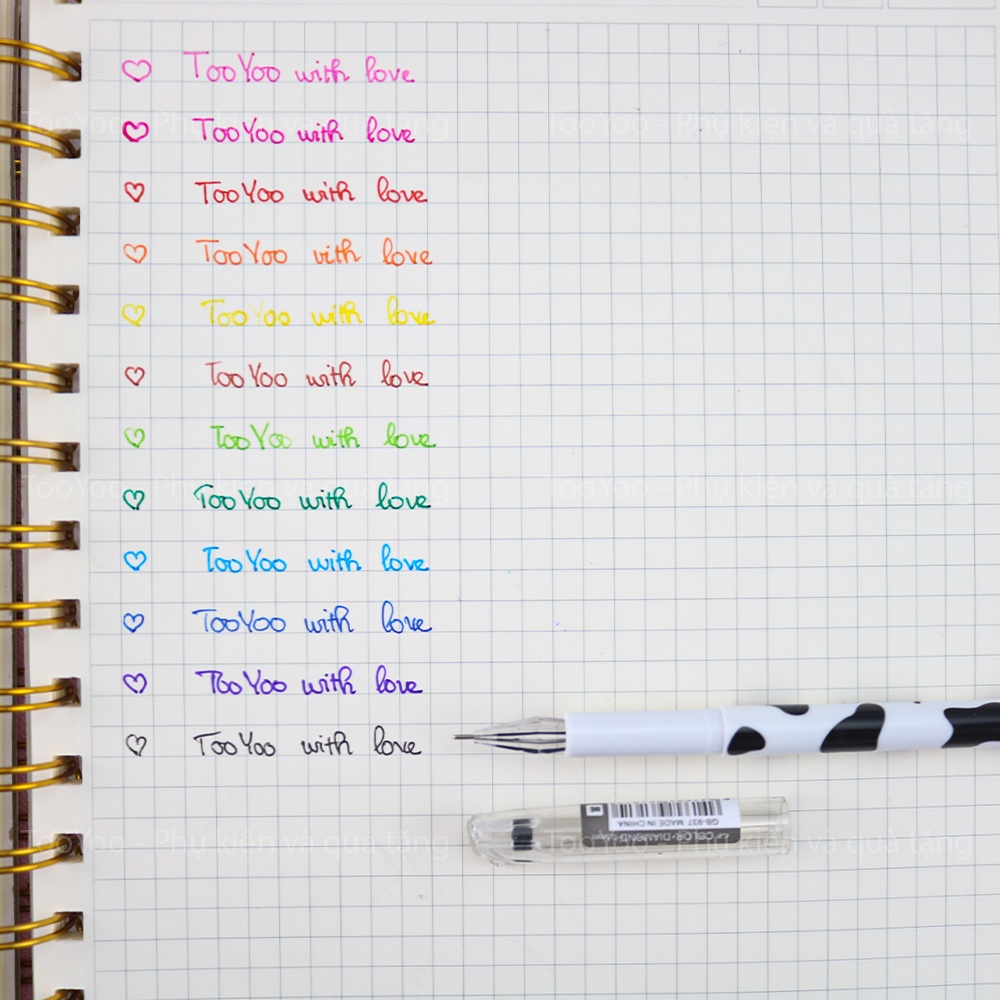 ♡ TooYoo with love
♡ TooYoo with love
♡ TooYoo with love
♡ TooYoo with love
♡ TooYoo with love
♡ TooYoo with love
♡ TooYoo with love
♡ TooYoo with love
♡ TooYoo with love
♡ TooYoo with love
♡ TooYoo with love
♡ TooYoo with love
GB-937 MADE IN CHINA
COLOR DIAMOND
TooYoo - Phụ kiện và quà tặng TooYoo - Phụ kiện và quà tặng
TooYoo - Phụ kiện và quà tặng TooYoo - Phụ kiện và quà tặng
TooYoo - Phụ kiện và quà tặng TooYoo - Phụ kiện và quà tặng